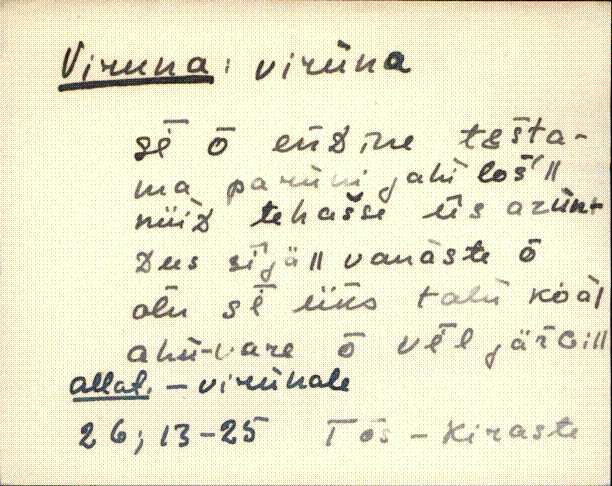 Viruna: virūna
sē ō enD́ine tešta-
ma parūni jahi loš́ ||
nüiD tehašse ūs arūn-
Dus sījä || vanaste ō
olu sē ūks talu koal
ahu-vare ō vēl järGi ||
allat. – virūnale
26; 13–25 Tōs – Kiraste